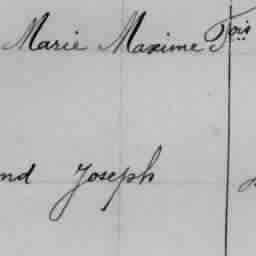 Marie Maxime Fois
nd Joseph